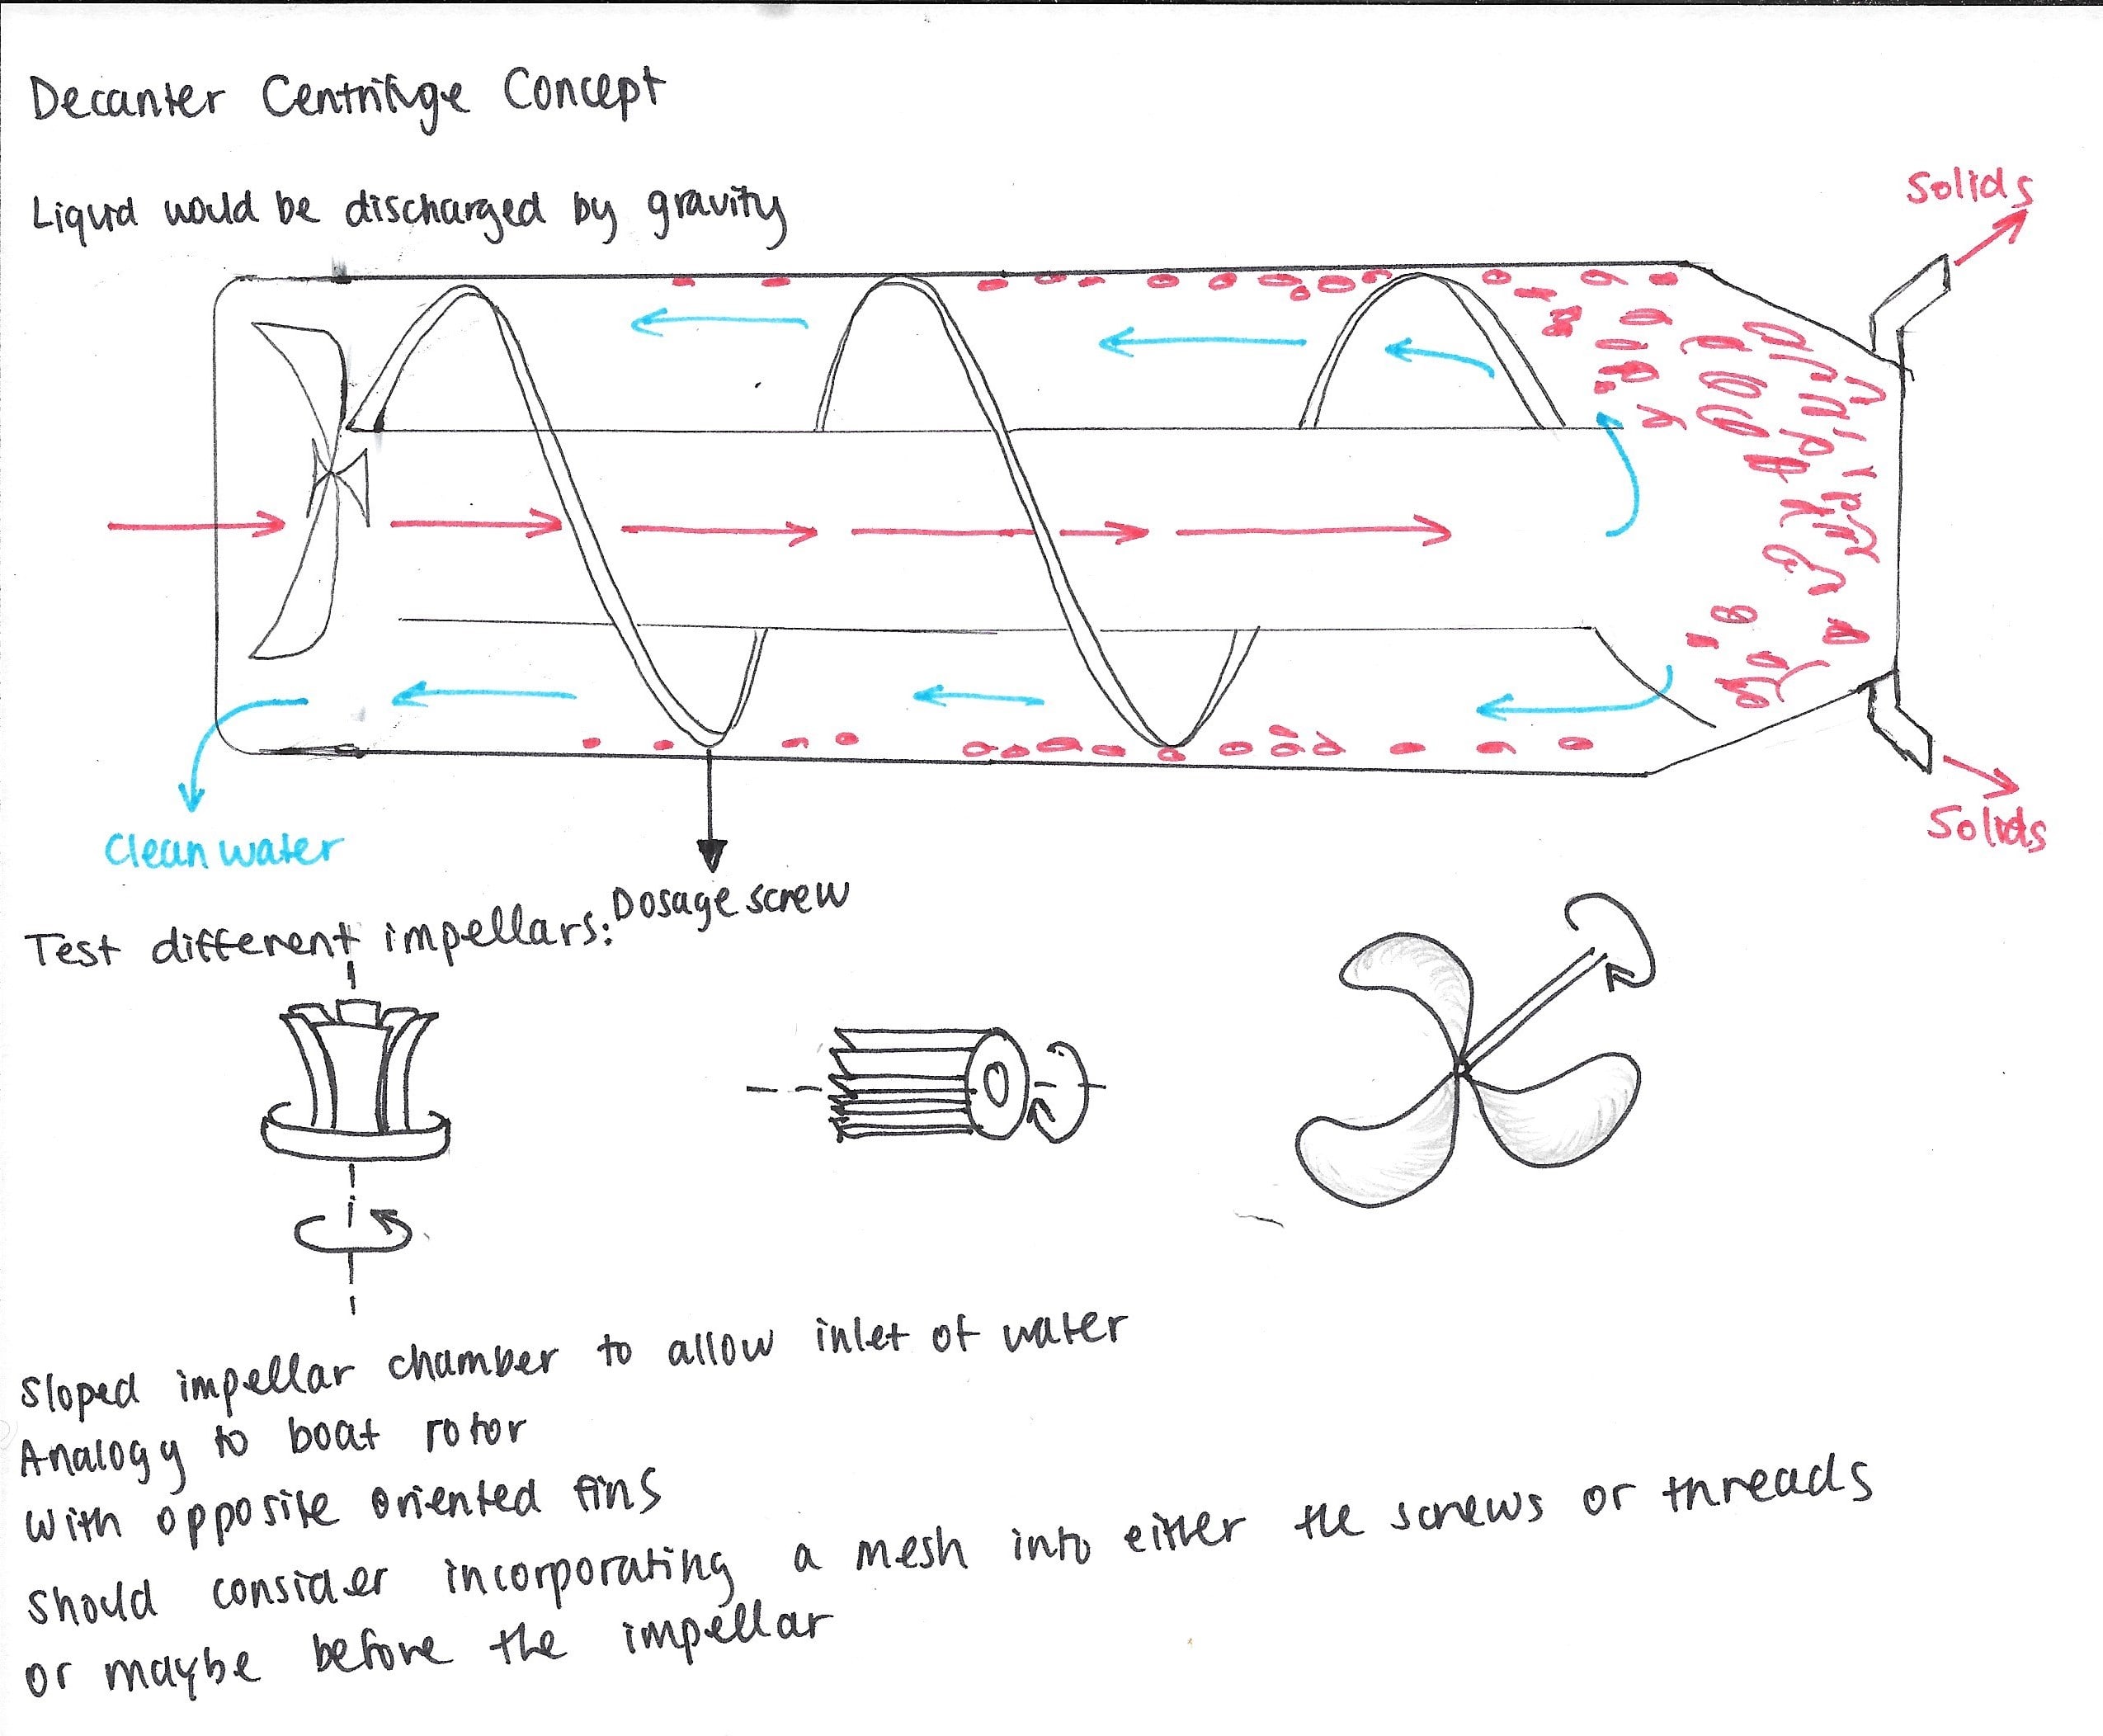 Decanter Centrifuge Concept
Liquid would be discharged by gravity
Solids
Solids
Clean water
Dosage screw
Test different impellars:
Sloped impellar chamber to allow inlet of water
Analogy to boat rotor
With opposite oriented fins
Should consider incorporating a mesh into either the screws or threads
or maybe before the impellar